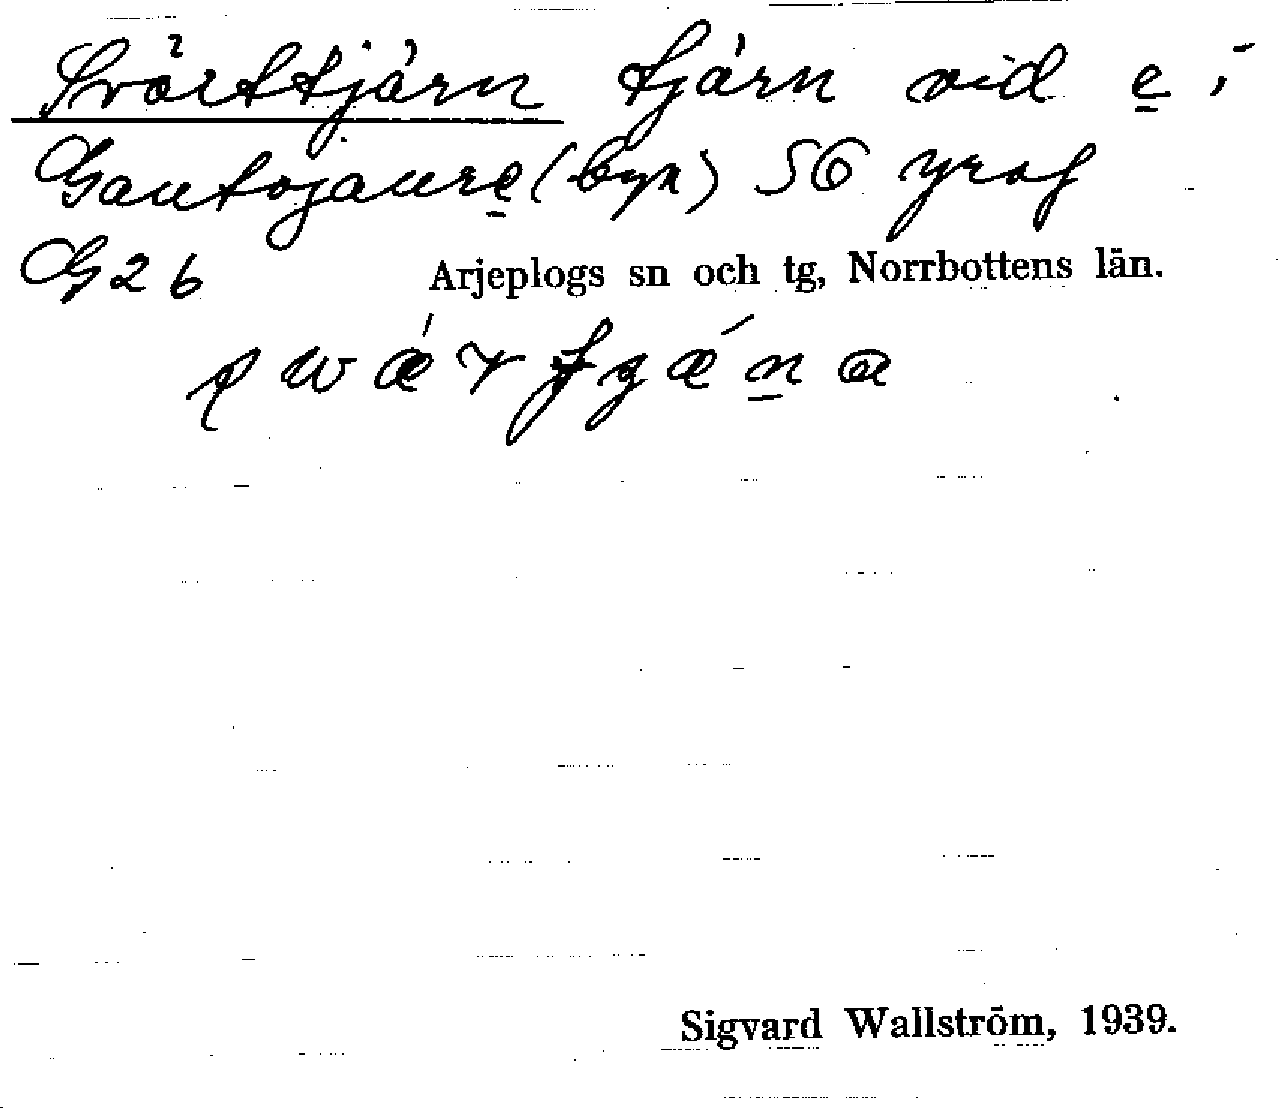 Svärttjärn tjärn vid e i
Gautojaure (byn) 56 yrof
G 2 b
Arjeplogs sn och tg, Norrbottens län.
Sigvard Wallström, 1939.